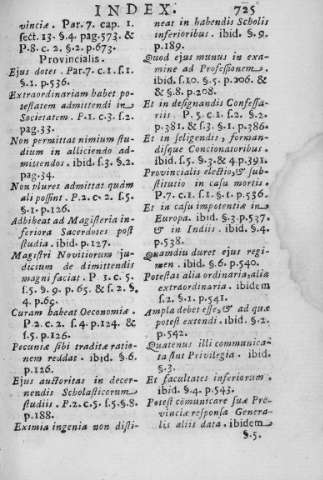 INDEX. 725
vinciæ. Par. 7. cap. 1.
sect. 13. §.4. pag. 573. &
P. 8. c. 2. §.2. p. 673.
Provincialis.
Ejus dotes. Par. 7. c. 1. s. 1.
§.1. p. 536.
Extraordinariam habet po-
testatem admittendi in
Societatem. P. 1. c. 3. s. 2.
pag. 33.
Non permittat nimium stu-
dium in alliciendo ad-
mittendos. ibid. s. 3. §.2.
pag. 34.
Non plures admittat quàm
ali possint. P. 2. c. 2. s. 5.
§.1. p. 126.
Adhibeat ad Magisteria in-
feriora Sacerdotes post
studia. ibid. p. 127.
Magistri Novitiorum ju-
dicium de dimittendis
magni faciat. P. c. 5.
s. 5. §.9. p. 65. & s. 2. §.
4. p. 60.
Curam habeat Oeconomiæ.
P. 2. c. 2. s. 4. p. 124. &
s. 5. p. 126.
Pecuniæ sibi traditæ ratio-
nem reddat. ibid. §.6.
p. 126.
Ejus auctoritas in decer-
nendis Scholasticorum
studiis. P. 2. c. 5. s. 5. §.8.
p. 188.
Eximia ingenia non disti-
neat in habendis Scholis
inferioribus. ibid. §.9.
p. 189.
Quod ejus munus in exa-
mine ad Professionem.
ibid. s. 10. §.5. p. 206. &
& §.8. p. 208.
Et in designandis Confessa-
riis. P. 5. c. 1. s. 2. §.2.
p. 381. & s. 3. §.1. p. 386.
Et in seligendis, forman-
disque Concionatoribus.
ibid. s. 5. §.3. & 4. p. 391.
Provincialis electio, & sub-
stitutio in casu mortis.
P. 7. c. 1. s. 1. §.1. p. 536.
Et in casu impotentiæ in
Europa. ibid. §.3. p. 537.
& in Indiis. ibid. §.4.
p. 538.
Quamdiu duret ejus regi-
men. ibid. §.6. p. 540.
Potestas alia ordinaria, alia
extraordinaria. ibidem
s. 2. §.1. p. 541.
Ampla debet esse, & ad quæ
potest extendi. ibid. §.2.
p. 542.
Quatenus illi communica-
ta sint Privilegia. ibid.
§.3.
Et facultates inferiorum.
ibid. §.4. p. 543.
Potest cõmunicare suæ Pro-
vinciæ responsa Genera-
lis aliis data. ibidem
§.5.